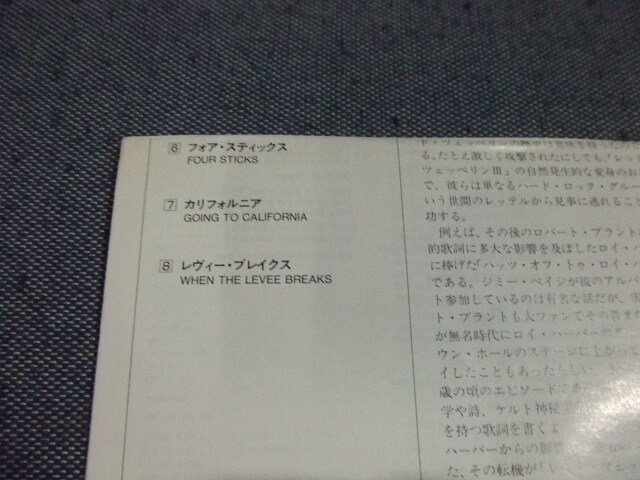 6 フォア・スティックス
FOUR STICKS
7 カリフォルニア
GOING TO CALIFORNIA
8 レヴィー・ブレイクス
WHEN THE LEVEE BREAKS
る。たとえ激しく攻撃されたにしても、「レッ
ツェッペリンⅢ」の自然発生的な変身のお
で、彼らは単なるハード・ロック・グルー
いう世間のレッテルから見事に逃れること
功する。
例えば、その後のロバート・プラント
的歌詞に多大な影響を及ぼしたロイ・
に捧げた「ハッツ・オフ・トゥ・ロイ・ハ
である。ジミー・ペイジが彼のアルバ
ト参加しているのは有名な話だが、実
ト・プラントも大ファンでその昔まだ
が無名時代にロイ・ハーパーの
ウン・ホールのステージに上がって
イしたこともあったらしい。
歳の頃のエピソードで
学や詩、ケルト神秘
を持つ歌詞を書くよ
ハーパーからの影響
た、その転機が「レッ